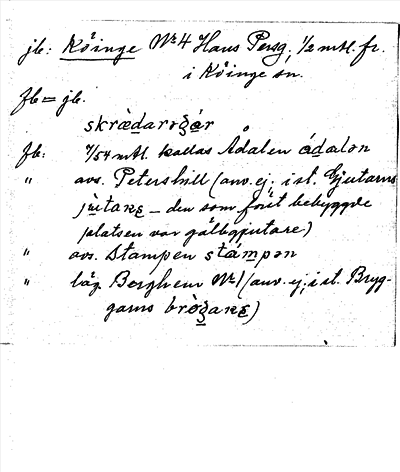 jb: Köinge Nr 4 Hans Persg, 1/2 mtl. fr.
i Köinge sn.
fb = jb.
skræ̀daroʒǻr
fb: 7/54 mtl. kallas Ådalen ádalən
" avs. Petershill (anv. ej, i st. Gjutarns
jùtaʀɛ – den som först bebyggde
platsen var gålbgjutare)
" avs. Stampen stámpən
" läg. Berghem Nr 1 (anv. ej, i st. Bryg-
garns brø̀ʒaʀɛ)